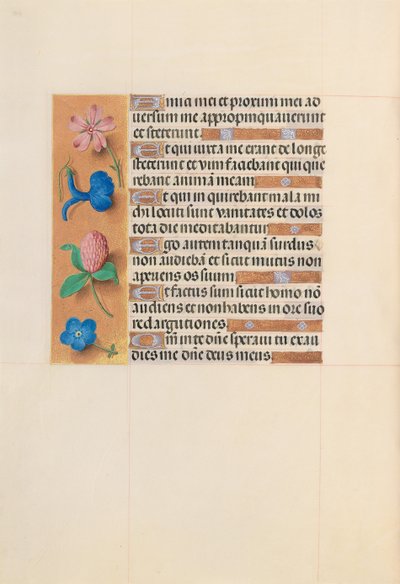 Amici mei et proximi mei ad
versum me appropinquaverunt
et steterunt.
Et qui iuxta me erant de longe
steterunt et vim faciebant qui que
rebant animā meam
Et qui inquirebant mala mi
chi locuti sunt vanitates et dolos
tota die meditabantur
Ego autem tanquā surdus
non audiebā et sicut mutus non
aperiens os suum
Et factus sum sicut homo nō
audiens et non habens in ore suo
redargutiones.
Qm̄ in te dn̄e speravi tu exau
dies me dn̄e deus meus